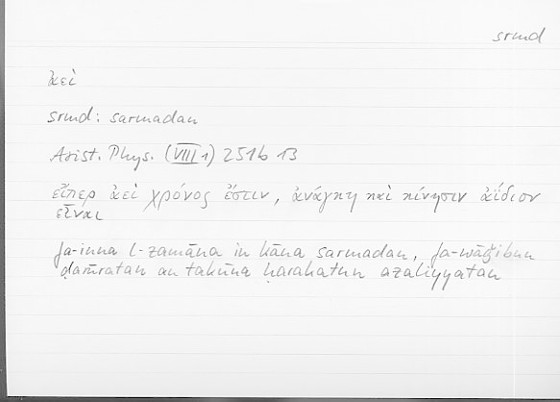 srmd
ἀεὶ
srmd: sarmadan
Arist. Phys. (VIII 1) 251b 13
εἴπερ ἀεὶ χρόνος ἔστιν, ἀνάγκη καὶ κίνησιν ἀΐδιον
εἶναι
fa-inna l-zamāna in kāna sarmadan, fa-wāǧibun
ḍarūratan an takūna ḥarakatun azaliyyatan